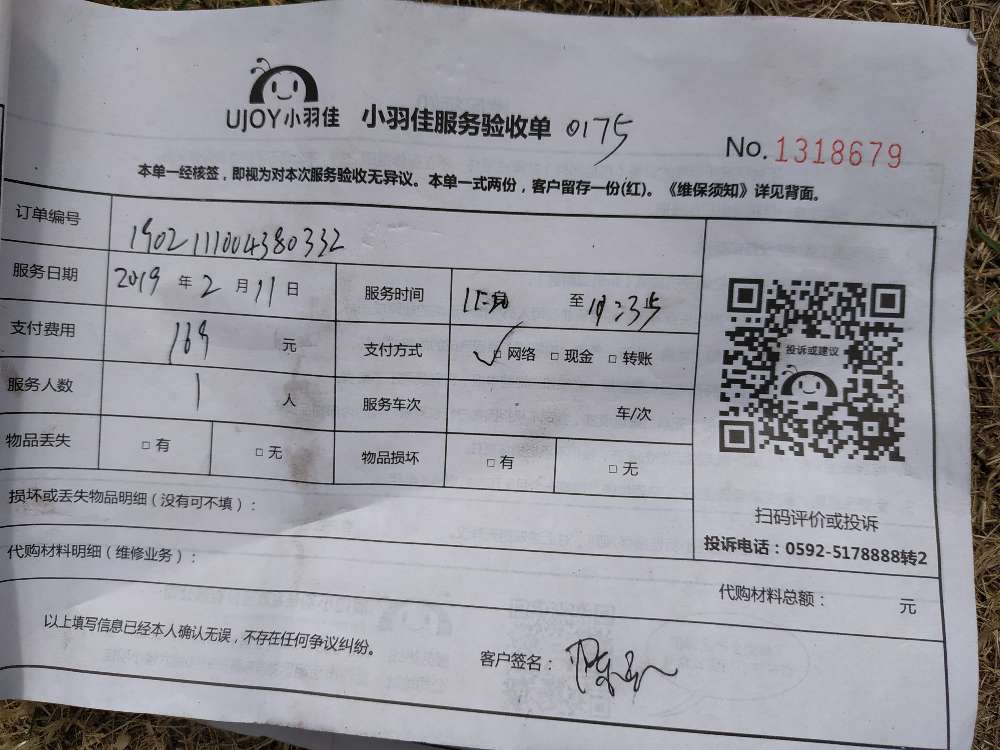 UJOY小羽佳 小羽佳服务验收单 0175
No. 1318679
本单一经核签，即视为对本次服务验收无异议。本单一式两份，客户留存一份(红)。《维保须知》详见背面。
订单编号 1902111004380332
服务日期 2019 年 2 月 11 日 服务时间 至
支付费用 169 元 支付方式 ✓□ 网络 □ 现金 □ 转账
投诉或建议
服务人数 1 人 服务车次 车/次
物品丢失 □ 有 □ 无 物品损坏 □ 有 □ 无
损坏或丢失物品明细（没有可不填）：
扫码评价或投诉
投诉电话：0592-5178888转2
代购材料明细（维修业务）：
代购材料总额： 元
以上填写信息已经本人确认无误，不存在任何争议纠纷。
客户签名：